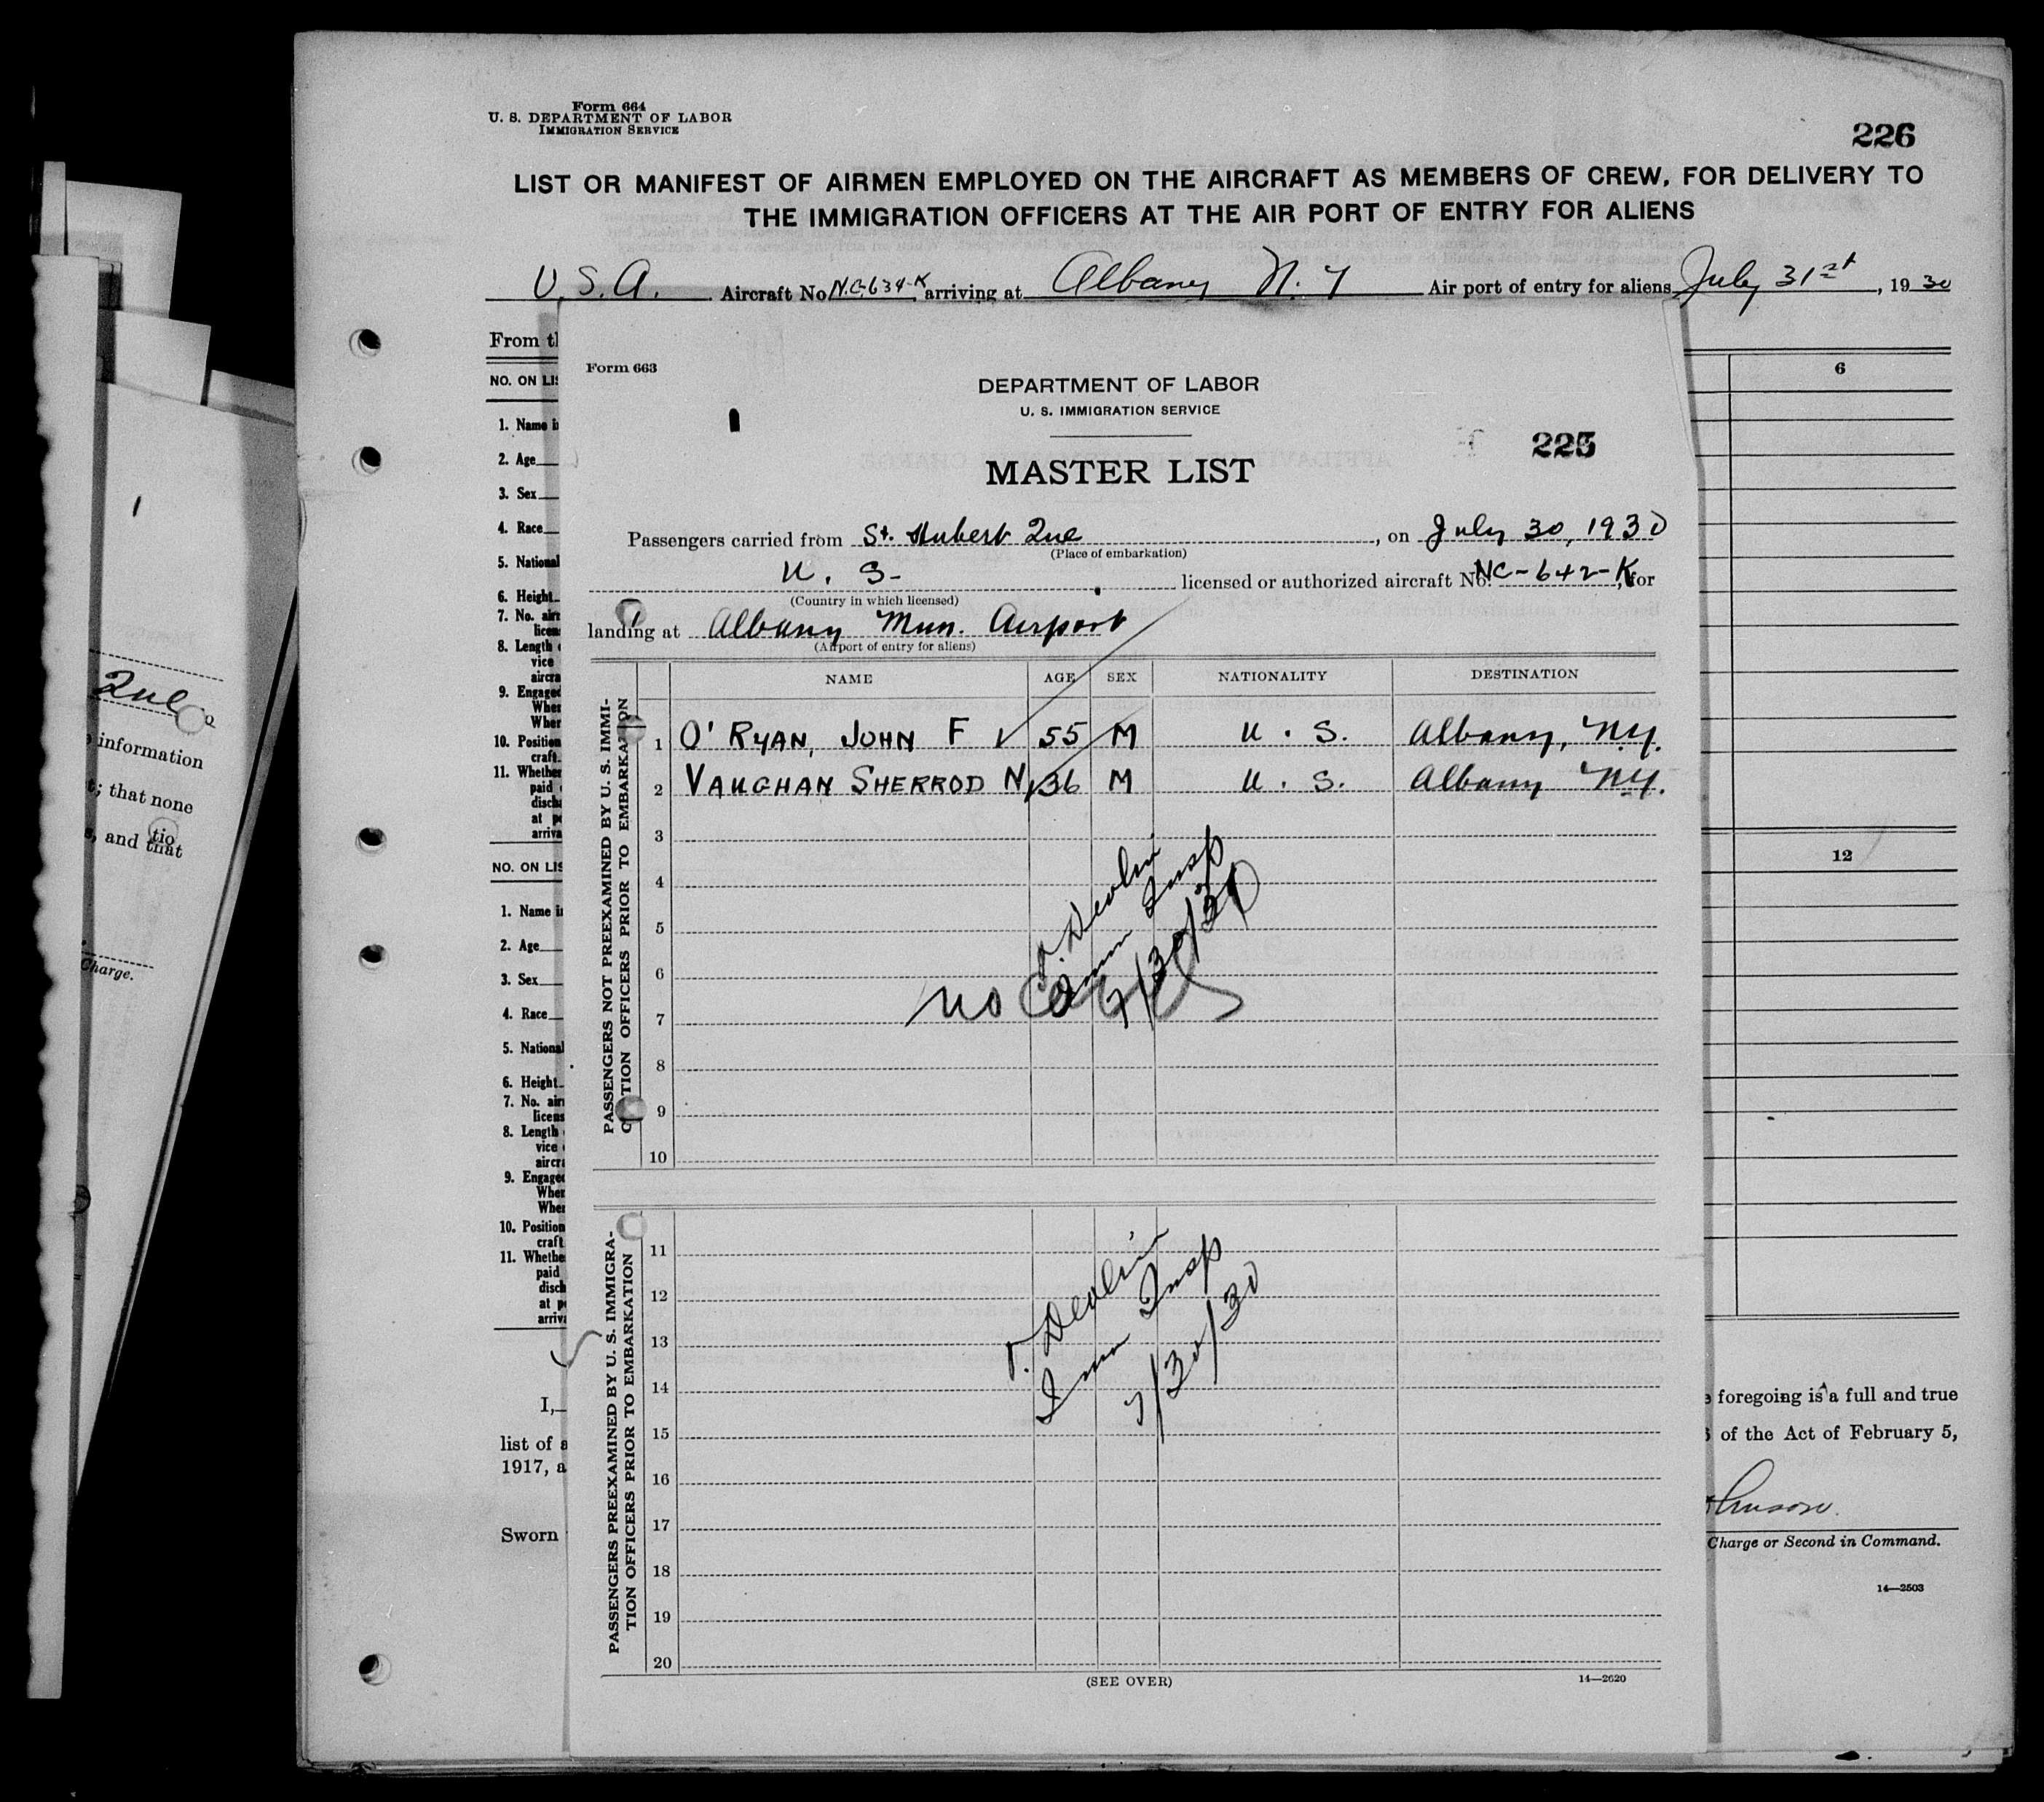 Form 664
U. S. DEPARTMENT OF LABOR
IMMIGRATION SERVICE
226
LIST OR MANIFEST OF AIRMEN EMPLOYED ON THE AIRCRAFT AS MEMBERS OF CREW, FOR DELIVERY TO
THE IMMIGRATION OFFICERS AT THE AIR PORT OF ENTRY FOR ALIENS
U.S.A. Aircraft No. N.C.634-K arriving at Albany N.Y Air port of entry for aliens July 31st, 1930
From
NO. ON
1. Name
2. Age
3. Sex
4. Race
5. National
6. Height
7. No.
8. Length
vice
9. Engaged
10. Position
craft.
11. Whether
paid
at
6
NO. ON
1. Name
2. Age
3. Sex
4. Race
5. National
6. Height
7. No.
8. Length
vice
9. Engaged
10. Position
craft.
11. Whether
paid
at
12
I,
list of
1917,
Sworn
foregoing is a full and true
of the Act of February 5,
Charge or Second in Command.
14—2503
Form 663
DEPARTMENT OF LABOR
U. S. IMMIGRATION SERVICE
225
MASTER LIST
Passengers carried from St. Hubert Que, on July 30, 1930
(Place of embarkation)
U. S. licensed or authorized aircraft No. NC-642-K, for
(Country in which licensed)
landing at Albany Mun. Airport
(Airport of entry for aliens)
NAME AGE SEX NATIONALITY DESTINATION
PASSENGERS NOT PREEXAMINED BY U. S. IMMI-
GRATION OFFICERS PRIOR TO EMBARKATION
1 O'RYAN, JOHN F 55 M U. S. Albany, N.Y.
2 VAUGHAN SHERROD N 36 M U. S. Albany N.Y.
3
4
5
6
7
8
9
10
Devlin
Imm Insp
7/30/30
no cards
PASSENGERS PREEXAMINED BY U. S. IMMIGRA-
TION OFFICERS PRIOR TO EMBARKATION
11
12
13
14
15
16
17
18
19
20
Devlin
Imm Insp
7/30/30
(SEE OVER)
14—2620
Que
information
; that none
, and that
tio
Charge.